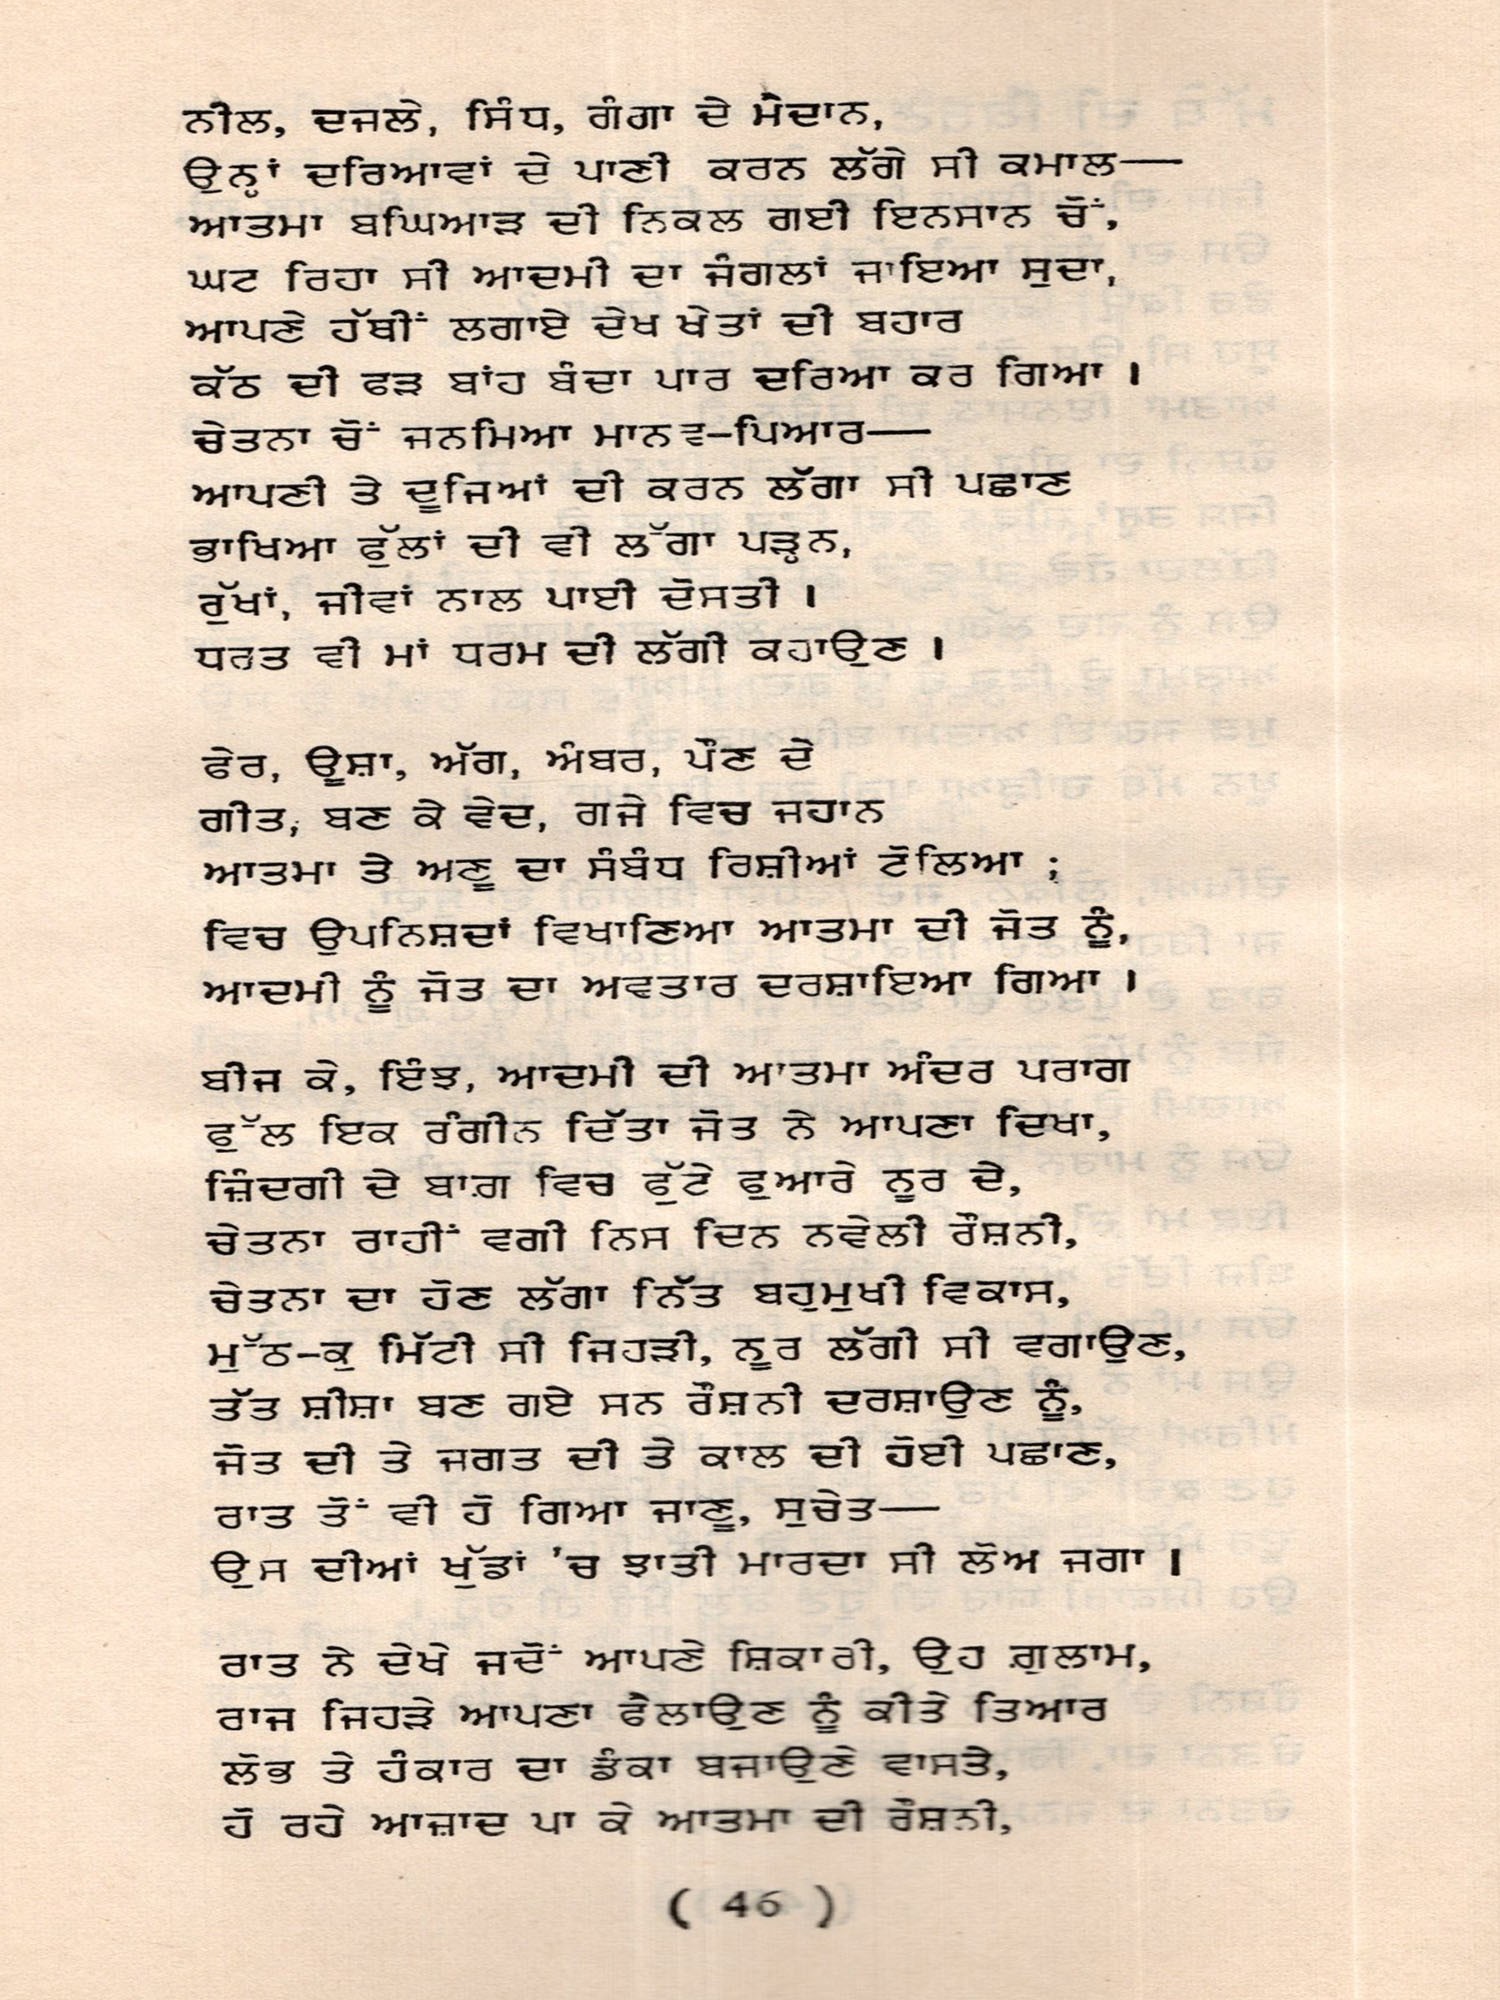 ਨੀਲ, ਦਜਲੇ, ਸਿੰਧ, ਗੰਗਾ ਦੇ ਮੈਦਾਨ,
ਉਨ੍ਹਾਂ ਦਰਿਆਵਾਂ ਦੇ ਪਾਣੀ ਕਰਨ ਲੱਗੇ ਸੀ ਕਮਾਲ—
ਆਤਮਾ ਬਘਿਆੜ ਦੀ ਨਿਕਲ ਗਈ ਇਨਸਾਨ ਚੋਂ,
ਘਟ ਰਿਹਾ ਸੀ ਆਦਮੀ ਦਾ ਜੰਗਲਾਂ ਜਾਇਆ ਸੁਦਾ,
ਆਪਣੇ ਹੱਥੀਂ ਲਗਾਏ ਦੇਖ ਖੇਤਾਂ ਦੀ ਬਹਾਰ
ਕੱਠ ਦੀ ਫੜ ਬਾਂਹ ਬੰਦਾ ਪਾਰ ਦਰਿਆ ਕਰ ਗਿਆ ।
ਚੇਤਨਾ ਚੋਂ ਜਨਮਿਆ ਮਾਨਵ-ਪਿਆਰ—
ਆਪਣੀ ਤੇ ਦੂਜਿਆਂ ਦੀ ਕਰਨ ਲੱਗਾ ਸੀ ਪਛਾਣ
ਭਾਖਿਆ ਫੁੱਲਾਂ ਦੀ ਵੀ ਲੱਗਾ ਪੜ੍ਹਨ,
ਰੁੱਖਾਂ, ਜੀਵਾਂ ਨਾਲ ਪਾਈ ਦੋਸਤੀ ।
ਧਰਤ ਵੀ ਮਾਂ ਧਰਮ ਦੀ ਲੱਗੀ ਕਹਾਉਣ ।
ਫੇਰ, ਊਸ਼ਾ, ਅੱਗ, ਅੰਬਰ, ਪੌਣ ਦੇ
ਗੀਤ, ਬਣ ਕੇ ਵੇਦ, ਗਜੇ ਵਿਚ ਜਹਾਨ
ਆਤਮਾ ਤੇ ਅਣੂ ਦਾ ਸੰਬੰਧ ਰਿਸ਼ੀਆਂ ਟੋਲਿਆ ;
ਵਿਚ ਉਪਨਿਸ਼ਦਾਂ ਵਿਖਾਣਿਆ ਆਤਮਾ ਦੀ ਜੋਤ ਨੂੰ,
ਆਦਮੀ ਨੂੰ ਜੋਤ ਦਾ ਅਵਤਾਰ ਦਰਸ਼ਾਇਆ ਗਿਆ ।
ਬੀਜ ਕੇ, ਇੰਝ, ਆਦਮੀ ਦੀ ਆਤਮਾ ਅੰਦਰ ਪਰਾਗ
ਫੁੱਲ ਇਕ ਰੰਗੀਨ ਦਿੱਤਾ ਜੋਤ ਨੇ ਆਪਣਾ ਦਿਖਾ,
ਜ਼ਿੰਦਗੀ ਦੇ ਬਾਗ਼ ਵਿਚ ਫੁੱਟੇ ਫੁਆਰੇ ਨੂਰ ਦੇ,
ਚੇਤਨਾ ਰਾਹੀਂ ਵਗੀ ਨਿਸ ਦਿਨ ਨਵੇਲੀ ਰੌਸ਼ਨੀ,
ਚੇਤਨਾ ਦਾ ਹੋਣ ਲੱਗਾ ਨਿੱਤ ਬਹੁਮੁਖੀ ਵਿਕਾਸ,
ਮੁੱਠ-ਕੁ ਮਿੱਟੀ ਸੀ ਜਿਹੜੀ, ਨੂਰ ਲੱਗੀ ਸੀ ਵਗਾਉਣ,
ਤੱਤ ਸ਼ੀਸ਼ਾ ਬਣ ਗਏ ਸਨ ਰੌਸ਼ਨੀ ਦਰਸ਼ਾਉਣ ਨੂੰ,
ਜੋਤ ਦੀ ਤੇ ਜਗਤ ਦੀ ਤੇ ਕਾਲ ਦੀ ਹੋਈ ਪਛਾਣ,
ਰਾਤ ਤੋਂ ਵੀ ਹੋ ਗਿਆ ਜਾਣੂ, ਸੁਚੇਤ—
ਉਸ ਦੀਆਂ ਖੁੱਡਾਂ 'ਚ ਝਾਤੀ ਮਾਰਦਾ ਸੀ ਲੋਅ ਜਗਾ ।
ਰਾਤ ਨੇ ਦੇਖੇ ਜਦੋਂ ਆਪਣੇ ਸ਼ਿਕਾਰੀ, ਉਹ ਗ਼ੁਲਾਮ,
ਰਾਜ ਜਿਹੜੇ ਆਪਣਾ ਫੈਲਾਉਣ ਨੂੰ ਕੀਤੇ ਤਿਆਰ
ਲੋਭ ਤੇ ਹੰਕਾਰ ਦਾ ਡੰਕਾ ਬਜਾਉਣੇ ਵਾਸਤੇ,
ਹੋ ਰਹੇ ਆਜ਼ਾਦ ਪਾ ਕੇ ਆਤਮਾ ਦੀ ਰੌਸ਼ਨੀ,
( 46 )